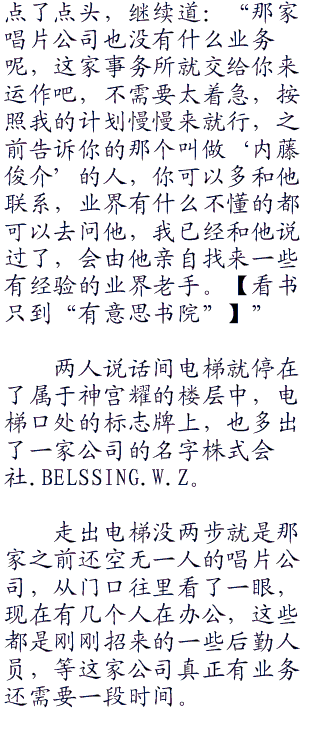 点了点头，继续道：“那家
唱片公司也没有什么业务
呢，这家事务所就交给你来
运作吧，不需要太着急，按
照我的计划慢慢来就行，之
前告诉你的那个叫做‘内藤
俊介’的人，你可以多和他
联系，业界有什么不懂的都
可以去问他，我已经和他说
过了，会由他亲自找来一些
有经验的业界老手。【看书
只到“有意思书院”】”
两人说话间电梯就停在
了属于神宫耀的楼层中，电
梯口处的标志牌上，也多出
了一家公司的名字株式会
社.BELSSING.W.Z。
走出电梯没两步就是那
家之前还空无一人的唱片公
司，从门口往里看了一眼，
现在有几个人在办公，这些
都是刚刚招来的一些后勤人
员，等这家公司真正有业务
还需要一段时间。